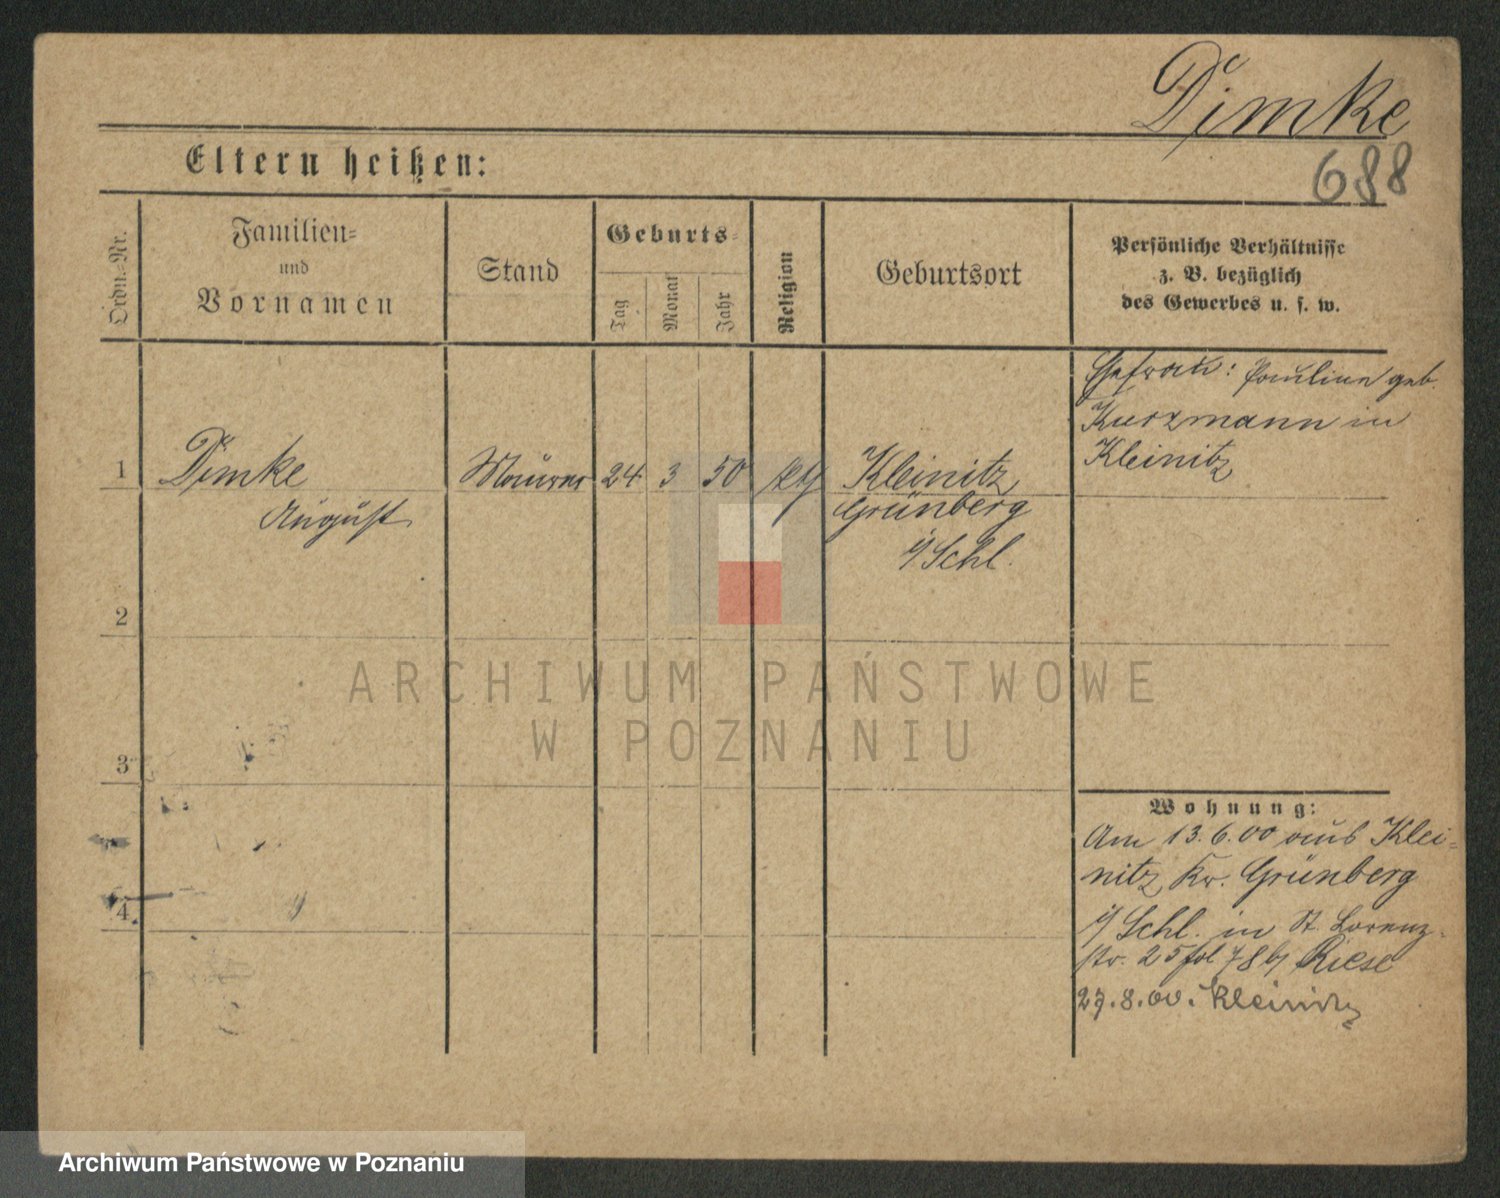 Dimke
688
Eltern heißen:
Ordn.=Nr.
Familien=
und
Vornamen
Stand
Geburts=
Tag
Monat
Jahr
Religion
Geburtsort
Persönliche Verhältnisse
z. B. bezüglich
des Gewerbes u. s. w.
1
Dimke
August
Maurer
24
3
50
Kleinitz
Grünberg
i/Schl.
Ehefrau: Pauline geb.
Kurzmann in
Kleinitz
2
3
4
Wohnung:
Am 13.6.00 aus Klei-
nitz, Kr. Grünberg
i/Schl. in St. Lorenz-
str. 25 fol 78 b/ Riese
27.8.00. Kleinitz
ARCHIWUM PAŃSTWOWE
W POZNANIU
Archiwum Państwowe w Poznaniu